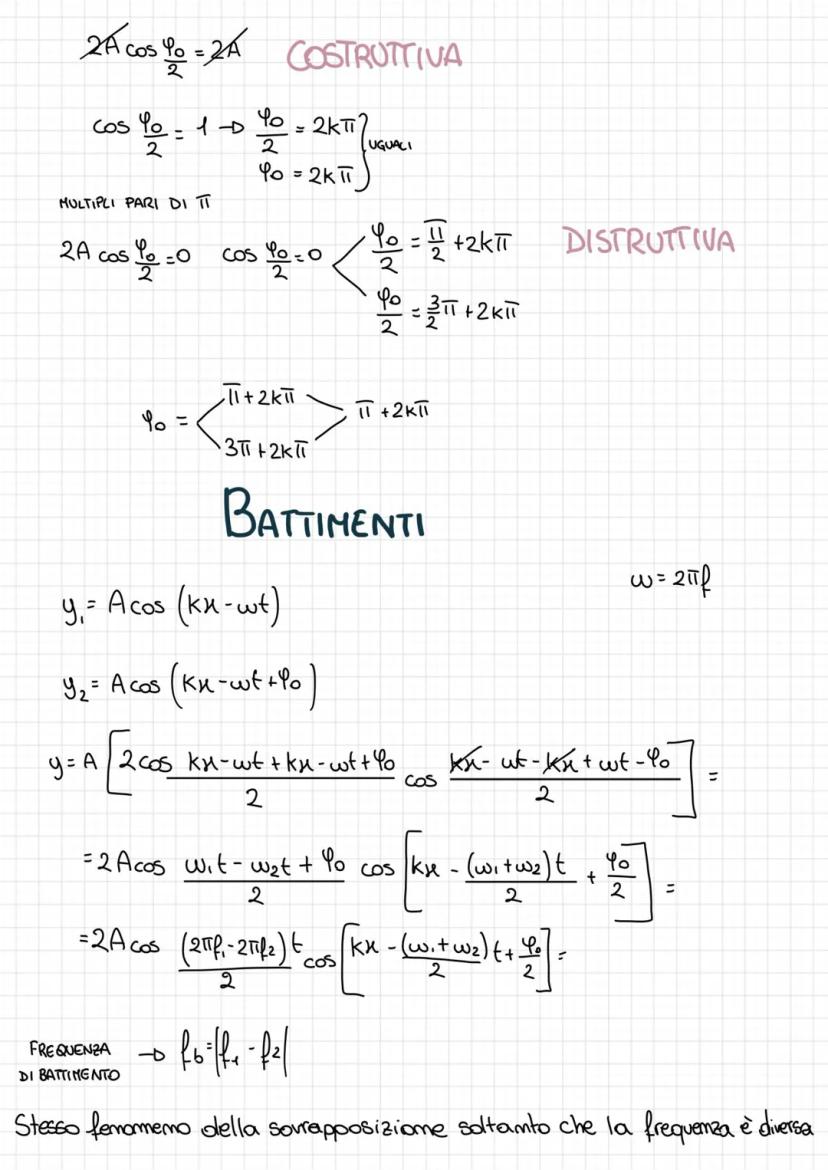 2A cos φ₀/2 = 2A COSTRUTTIVA
cos φ₀/2 = 1 → φ₀/2 = 2kπ
φ₀ = 2kπ } UGUALI
MULTIPLI PARI DI π
2A cos φ₀/2 = 0 cos φ₀/2 = 0 φ₀/2 = π/2 + 2kπ DISTRUTTIVA
φ₀/2 = 3/2 π + 2kπ
φ₀ = π + 2kπ π + 2kπ
3π + 2kπ
BATTIMENTI
ω = 2πf
y₁ = A cos (kx - ωt)
y₂ = A cos (kx - ωt + φ₀)
y = A [2 cos (kx - ωt + kx - ωt + φ₀)/2 cos (kx - ωt - kx + ωt - φ₀)/2] =
= 2A cos (ω₁t - ω₂t + φ₀)/2 cos [kx - (ω₁+ω₂)t/2 + φ₀/2] =
= 2A cos (2πf₁ - 2πf₂)t/2 cos [kx - (ω₁+ω₂)/2 t + φ₀/2] =
FREQUENZA DI BATTIMENTO → f_b = |f₁ - f₂|
Stesso fenomemo della sovrapposizione soltamto che la frequemza è diversa